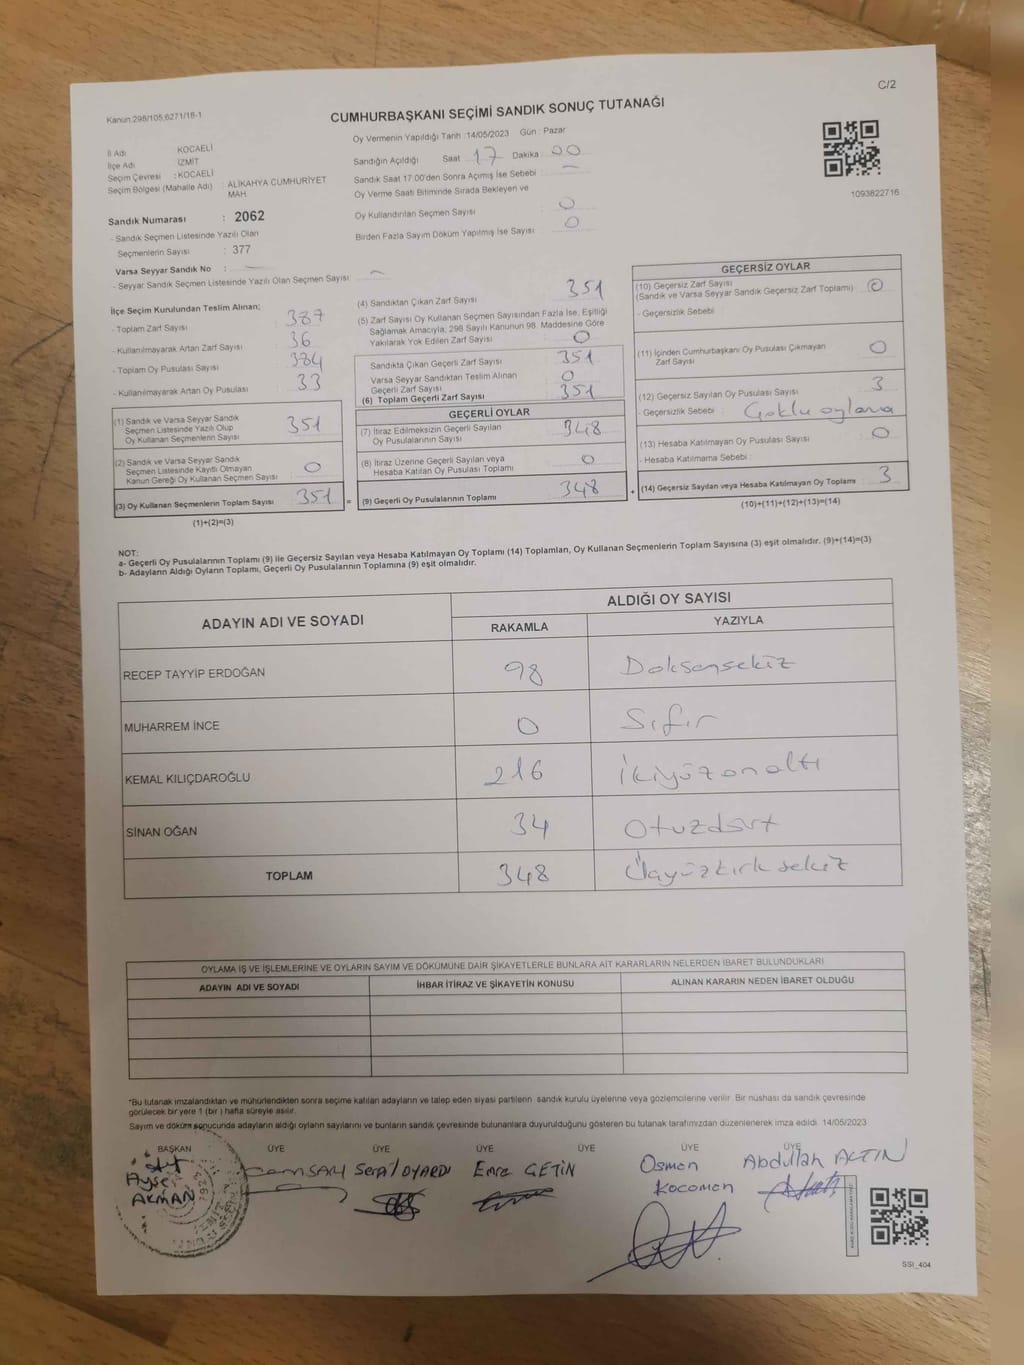 C/2
Kanun:298/105;6271/18-1
CUMHURBAŞKANI SEÇİMİ SANDIK SONUÇ TUTANAĞI
Oy Vermenin Yapıldığı Tarih :14/05/2023 Gün : Pazar
İl Adı : KOCAELİ
İlçe Adı : İZMİT
Seçim Çevresi : KOCAELİ
Seçim Bölgesi (Mahalle Adı) : ALİKAHYA CUMHURİYET MAH.
Sandık Numarası : 2062
- Sandık Seçmen Listesinde Yazılı Olan
Seçmenlerin Sayısı : 377
Varsa Seyyar Sandık No :
- Seyyar Sandık Seçmen Listesinde Yazılı Olan Seçmen Sayısı :
Sandığın Açıldığı Saat : 17 Dakika : 00
Sandık Saat 17:00'den Sonra Açımış İse Sebebi :
Oy Verme Saati Bitiminde Sırada Bekleyen ve
Oy Kullandırılan Seçmen Sayısı : 0
Birden Fazla Sayım Döküm Yapılmış İse Sayısı : 0
1093822716
İlçe Seçim Kurulundan Teslim Alınan;
- Toplam Zarf Sayısı 387
- Kullanılmayarak Artan Zarf Sayısı 36
- Toplam Oy Pusulası Sayısı 384
- Kullanılmayarak Artan Oy Pusulası 33
(1) Sandık ve Varsa Seyyar Sandık
Seçmen Listesinde Yazılı Olup
Oy Kullanan Seçmenlerin Sayısı 351
(2) Sandık ve Varsa Seyyar Sandık
Seçmen Listesinde Kayıtlı Olmayan
Kanun Gereği Oy Kullanan Seçmen Sayısı 0
(3) Oy Kullanan Seçmenlerin Toplam Sayısı 351
(1)+(2)=(3)
(4) Sandıktan Çıkan Zarf Sayısı 351
(5) Zarf Sayısı Oy Kullanan Seçmen Sayısından Fazla İse, Eşitliği
Sağlamak Amacıyla; 298 Sayılı Kanunun 98. Maddesine Göre
Yakılarak Yok Edilen Zarf Sayısı 0
Sandıkta Çıkan Geçerli Zarf Sayısı 351
Varsa Seyyar Sandıktan Teslim Alınan
Geçerli Zarf Sayısı 0
(6) Toplam Geçerli Zarf Sayısı 351
GEÇERLİ OYLAR
(7) İtiraz Edilmeksizin Geçerli Sayılan
Oy Pusulalarının Sayısı 348
(8) İtiraz Üzerine Geçerli Sayılan veya
Hesaba Katılan Oy Pusulası Toplamı 0
= (9) Geçerli Oy Pusulalarının Toplamı 348
GEÇERSİZ OYLAR
(10) Geçersiz Zarf Sayısı
(Sandık ve Varsa Seyyar Sandık Geçersiz Zarf Toplamı) 0
- Geçersizlik Sebebi :
(11) İçinden Cumhurbaşkanı Oy Pusulası Çıkmayan
Zarf Sayısı 0
(12) Geçersiz Sayılan Oy Pusulası Sayısı 3
- Geçersizlik Sebebi : Çoklu oylama
(13) Hesaba Katılmayan Oy Pusulası Sayısı 0
- Hesaba Katılmama Sebebi :
+ (14) Geçersiz Sayılan veya Hesaba Katılmayan Oy Toplamı 3
(10)+(11)+(12)+(13)=(14)
NOT:
a- Geçerli Oy Pusulalarının Toplamı (9) ile Geçersiz Sayılan veya Hesaba Katılmayan Oy Toplamı (14) Toplamları, Oy Kullanan Seçmenlerin Toplam Sayısına (3) eşit olmalıdır. (9)+(14)=(3)
b- Adayların Aldığı Oyların Toplamı, Geçerli Oy Pusulalarının Toplamına (9) eşit olmalıdır.
ADAYIN ADI VE SOYADI ALDIĞI OY SAYISI
RAKAMLA YAZIYLA
RECEP TAYYİP ERDOĞAN 98 Doksansekiz
MUHARREM İNCE 0 Sıfır
KEMAL KILIÇDAROĞLU 216 İkiyüzonaltı
SİNAN OĞAN 34 Otuzdört
TOPLAM 348 Üçyüzkırksekiz
OYLAMA İŞ VE İŞLEMLERİNE VE OYLARIN SAYIM VE DÖKÜMÜNE DAİR ŞİKAYETLERLE BUNLARA AİT KARARLARIN NELERDEN İBARET BULUNDUKLARI
ADAYIN ADI VE SOYADI İHBAR İTİRAZ VE ŞİKAYETİN KONUSU ALINAN KARARIN NEDEN İBARET OLDUĞU
*Bu tutanak imzalandıktan ve mühürlendikten sonra seçime katılan adayların ve talep eden siyasi partilerin sandık kurulu üyelerine veya gözlemcilerine verilir. Bir nüshası da sandık çevresinde
görülecek bir yere 1 (bir ) hafta süreyle asılır.
Sayım ve döküm sonucunda adayların aldığı oyların sayılarını ve bunların sandık çevresinde bulunanlara duyurulduğunu gösteren bu tutanak tarafımızdan düzenlenerek imza edildi. 14/05/2023
BAŞKAN ÜYE ÜYE ÜYE ÜYE ÜYE ÜYE
Ayşe AKMAN
Cem SARI
Serail OYARDI
Emre ÇETİN
Osman Kocomon
Abdullah ALTIN
SSI_404